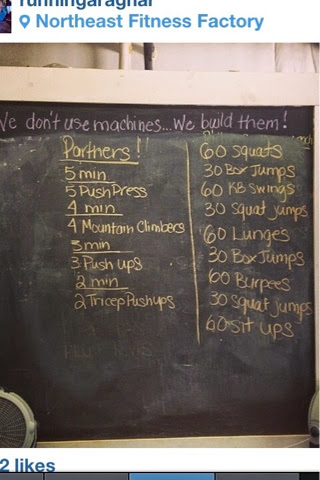 runningaragnar
Northeast Fitness Factory
We don't use machines...We build them!
Partners!
5 min
5 Push Press
4 min
4 Mountain Climbers
3 min
3 Push ups
2 min
2 Tricep Pushups
60 squats
30 Box Jumps
60 KB Swings
30 Squat jumps
60 Lunges
30 Box Jumps
60 Burpees
30 Squat jumps
60 Sit ups
2 likes